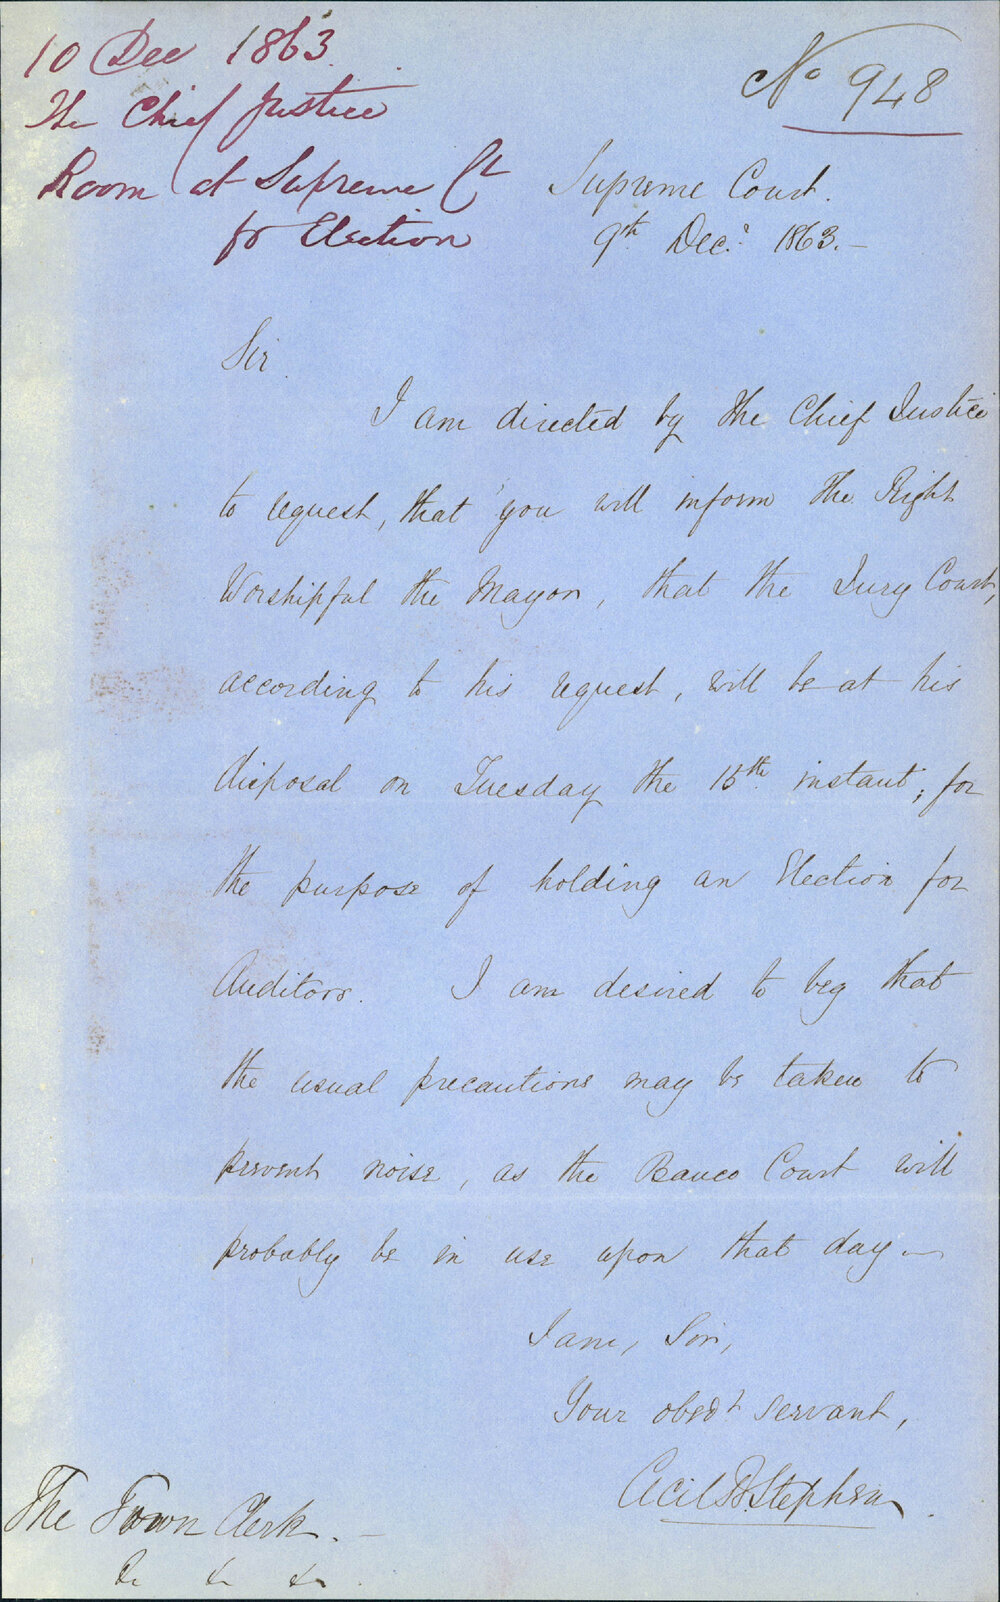 10 Dec 1863.
The Chief Justice
Room at Supreme Ct
for Election
No 948
Supreme Court.
9th. Decr. 1863.—
Sir
I am directed by the Chief Justice
to request, that you will inform the Right
Worshipful the Mayor, that the Jury Court,
according to his request, will be at his
disposal on Tuesday the 15th. instant; for
the purpose of holding an Election for
Auditors. I am desired to beg that
the usual precautions may be taken to
prevent noise, as the Banco Court will
probably be in use upon that day—
I am, Sir,
Your obedt servant,
Cecil B. Stephen.
The Town Clerk.—
&c &c &c.